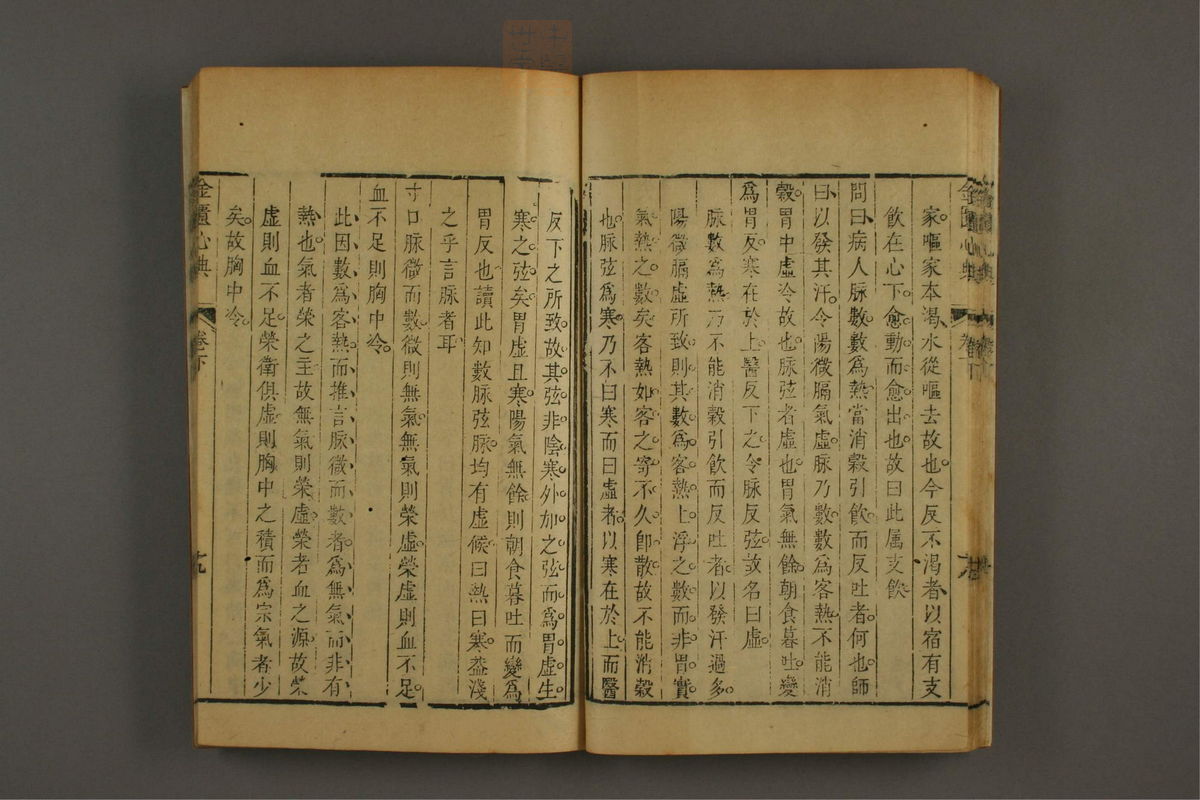 家嘔家本渴水從嘔去故也今反不渴者以宿有支
飲在心下愈動而愈出也故曰此属支飲
問曰病人脉數數爲熱當消穀引飲而反吐者何也師
曰以發其汗令陽微膈氣虛脉乃數數爲客熱不能消
穀胃中虛冷故也脉弦者虛也胃氣無餘朝食暮吐變
爲胃反寒在於上醫反下之令脉反弦故名曰虛
脉數爲熱乃不能消穀引飲而反吐者以發汗過多
陽微膈虛所致則其數爲客熱上浮之數而非胃實
氣熱之數矣客熱如客之寄不久卽散故不能消穀
也脉弦爲寒乃不曰寒而曰虛者以寒在於上而醫
反下之所致故其弦非陰寒外加之弦而爲胃虛生
寒之弦矣胃虛且寒陽氣無餘則朝食暮吐而變爲
胃反也讀此知數脉弦脉均有虛候曰熱曰寒葢淺
之乎言脉者耳
寸口脉微而數微則無氣無氣則榮虛榮虛則血不足
血不足則胸中冷
此因數爲客熱而推言脉微而數者爲無氣而非有
熱也氣者榮之主故無氣則榮虛榮者血之源故榮
虛則血不足榮衛俱虛則胸中之積而爲宗氣者少
矣故胸中冷
金匱心典
卷下